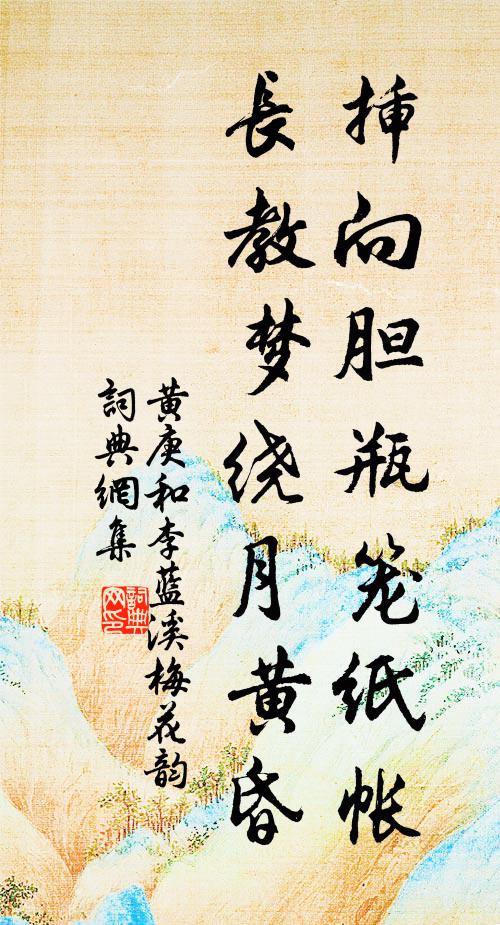 挿向胆瓶笼纸帐
長教梦绕月黄昏
黄庚和李蓝溪梅花韵
詞典網集
詞典网印